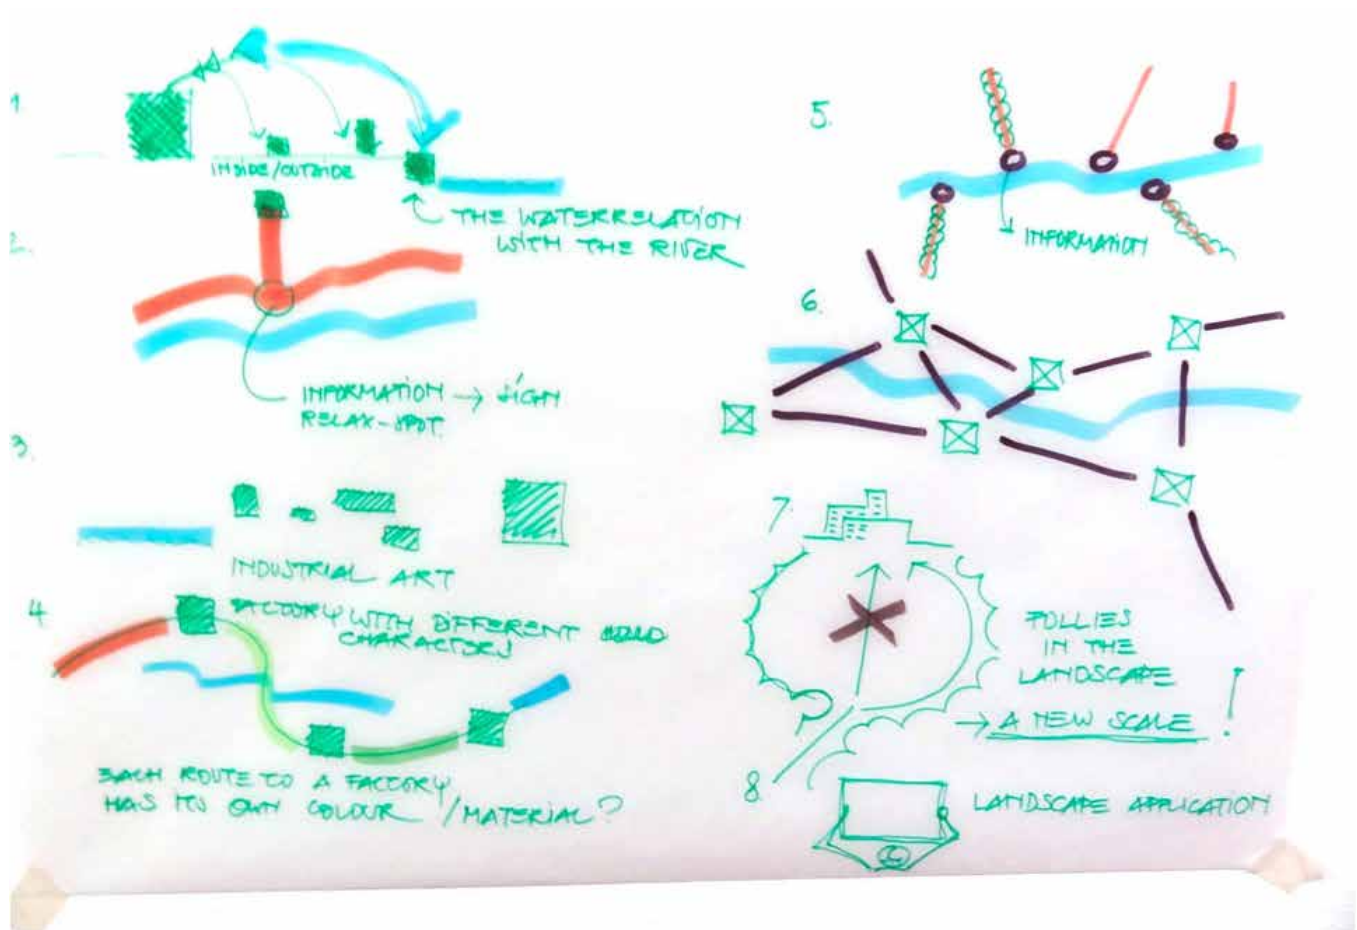 1
INSIDE/OUTSIDE
THE WATERRELATION
WITH THE RIVER
2.
INFORMATION → SIGN
RELAX-SPOT.
3.
INDUSTRIAL ART
4
FACTORY WITH DIFFERENT
CHARACTERS
EACH ROUTE TO A FACTORY
HAS ITS OWN COLOUR /MATERIAL?
5.
INFORMATION
6.
7.
FOLLIES
IN THE
LANDSCAPE
→ A NEW SCALE !
8.
LANDSCAPE APPLICATION